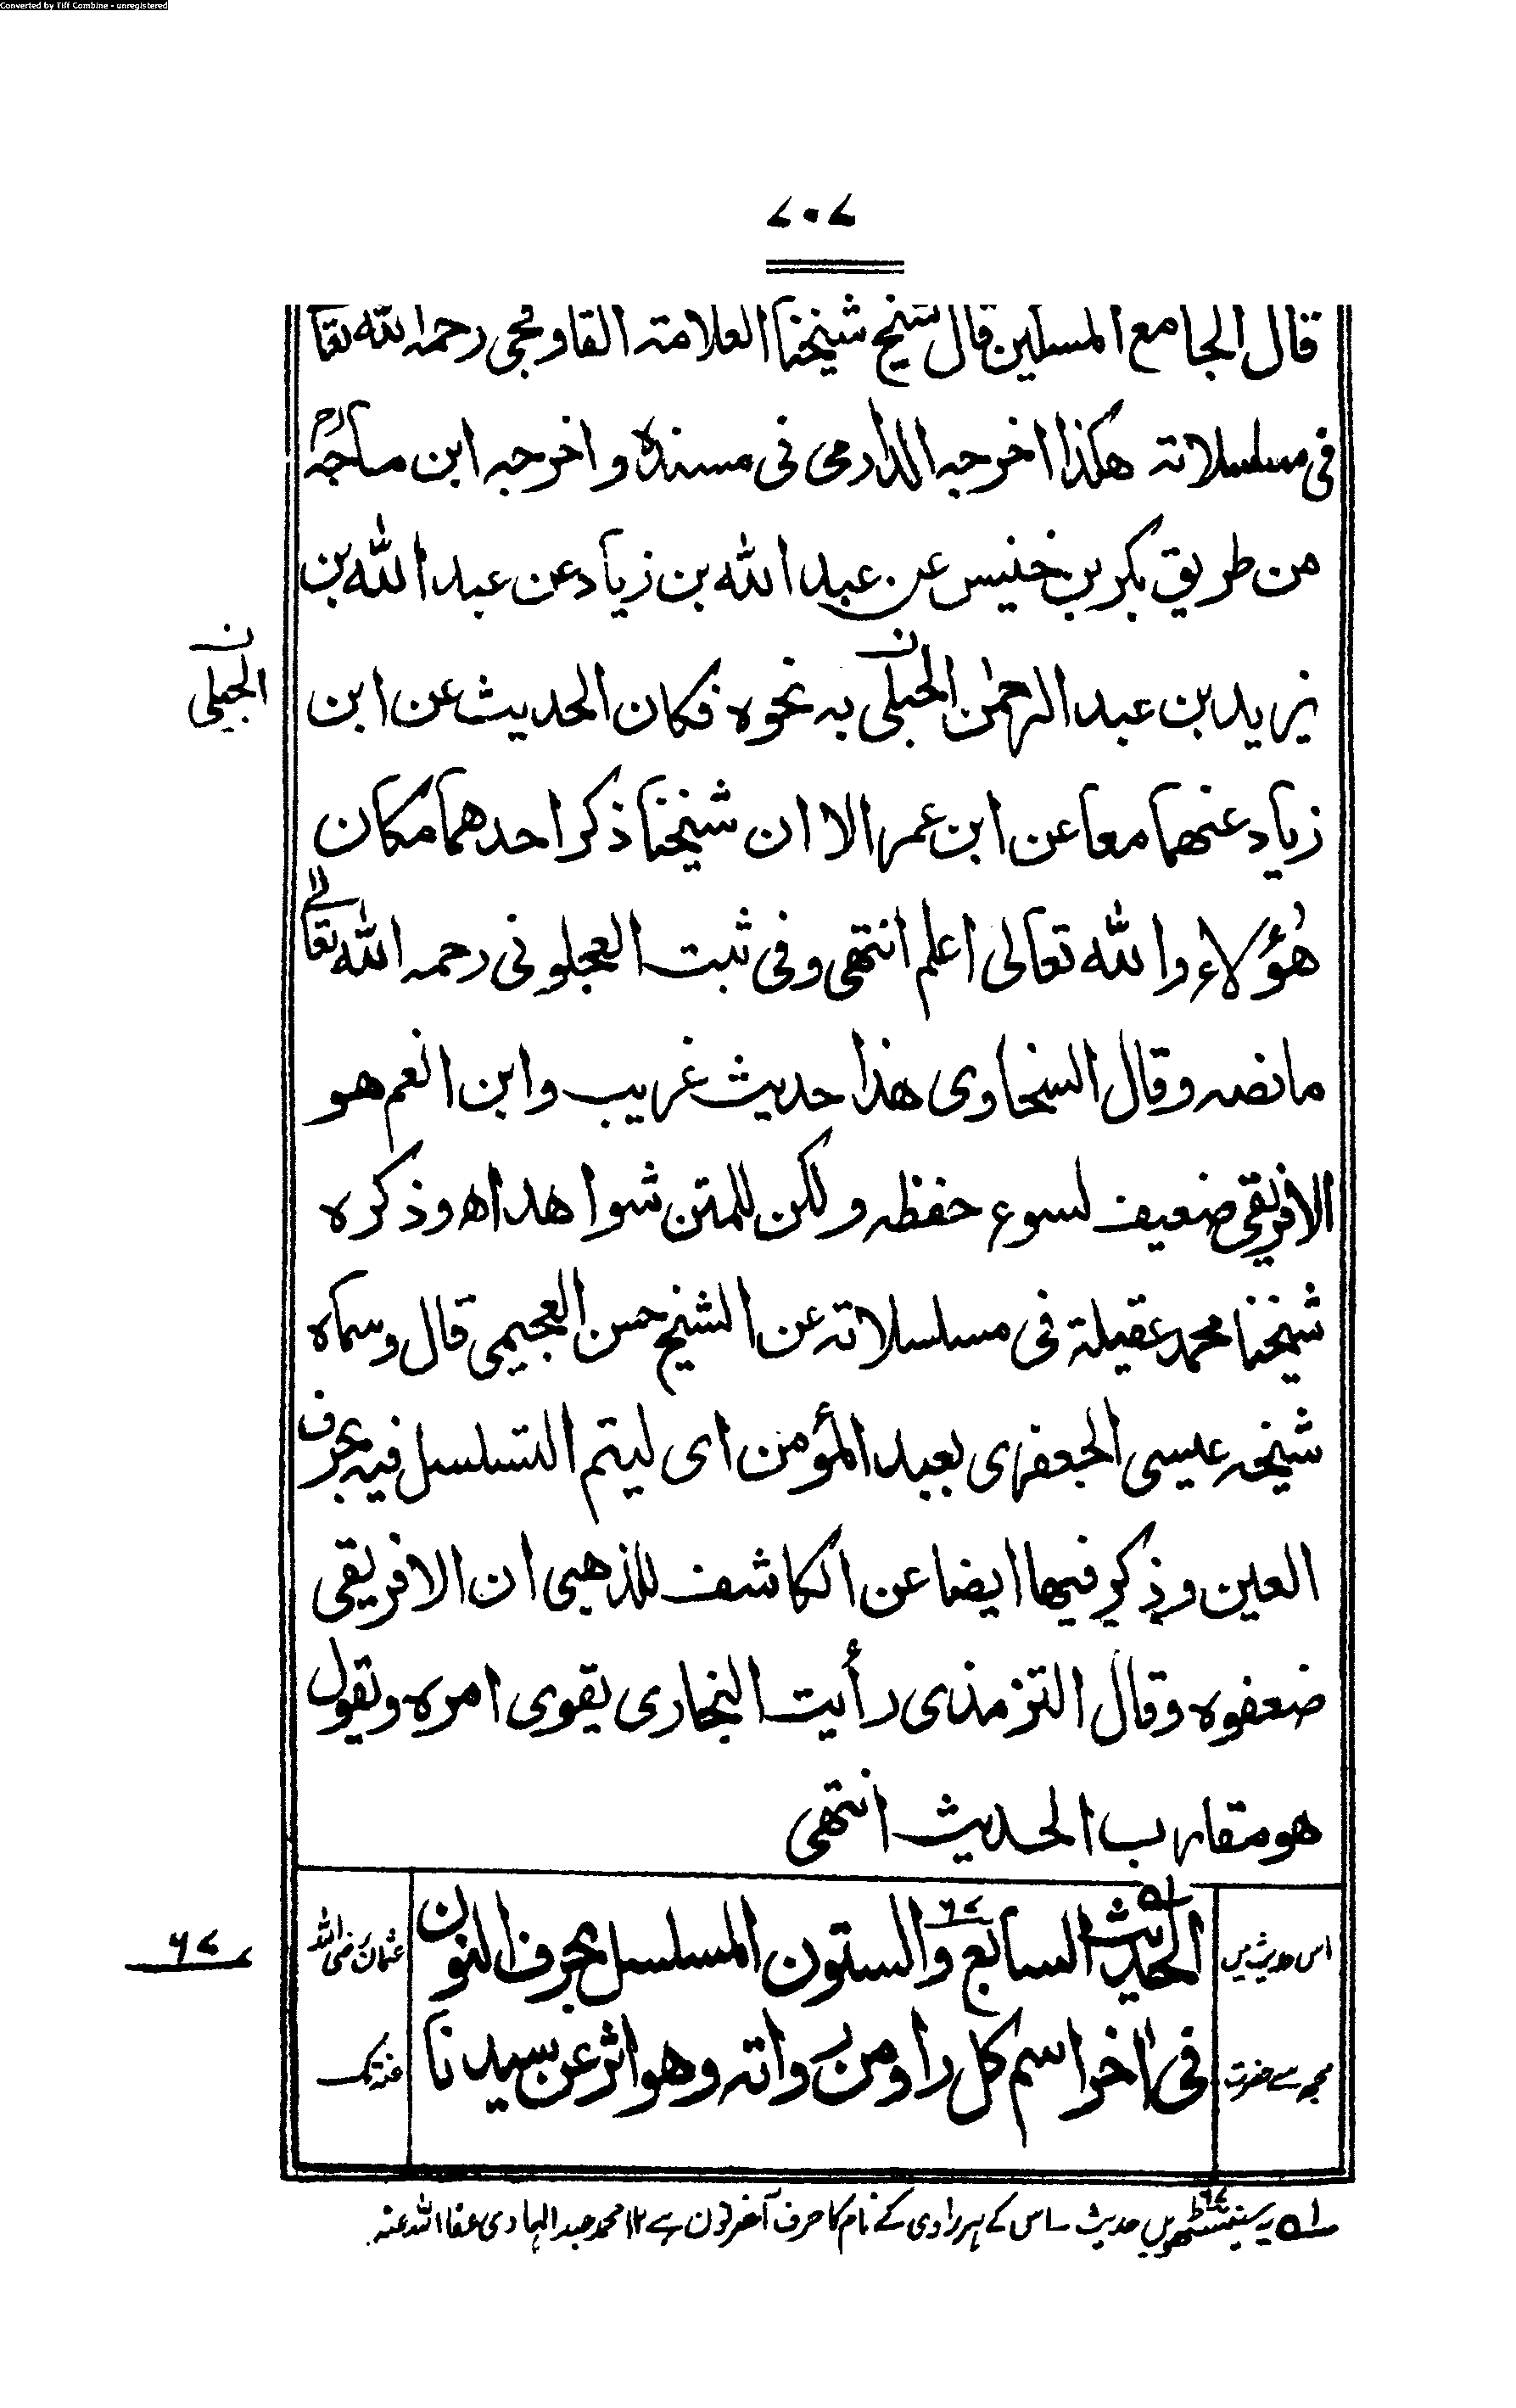 Converted by Tiff Combine - unregistered
۷۰۷
قال الجامع المسلين قال شيخ شيخنا العلامة القاوقجى رحمه الله تعا
فى مسلسلاته هكذا اخرجه الدارمى فى مسنده واخرجه ابن ماجهؒ
من طريق بكر بن خنيس عن عبد الله بن زياد عن عبد الله بن
يزيد بن عبد الرحمٰن الحبلى به نحوه فكان الحديث عن ابن
ن
الجبلى
زياد عنهما معا عن ابن عمر الا ان شيخنا ذكر احدهما مكان
هٰؤلاء والله تعالى اعلم انتهى وفى ثبت العجلونى رحمه الله تعالے
ما نصه وقال السخاوى هذا حديث غريب وابن انعم هو
الافريقى ضعيف لسوء حفظه ولكن للمتن شواهد اه وذكره
شيخنا محمد عقيلة فى مسلسلاته عن الشيخ حسن العجيمى قال وسماه
شيخه عيسى الجعفرى بعبد المؤمن اى ليتم التسلسل فيه بحرف
العين وذكر فيها ايضا عن الكاشف للذهبى ان الافريقى
ضعفوه وقال الترمذى رأيت البخارى يقوى امره ويقول
هو مقارب الحديث انتهى
الحديث السابع والستون المسلسل بحرف النون
فى اٰخر اسم كل راو من رواته وهو اثر عن سيدنا
اس حدیث میں
مجھ سے حضرت
عثمان رضی اللہ
عنہ تک
۶۷
۱ه یہ سینسٹھویں حدیث ہے اس کے ہر راوی کے نام کا حرف آخر نون ہے ۱۲ محمد عبد الہادی عفا اللہ عنہ